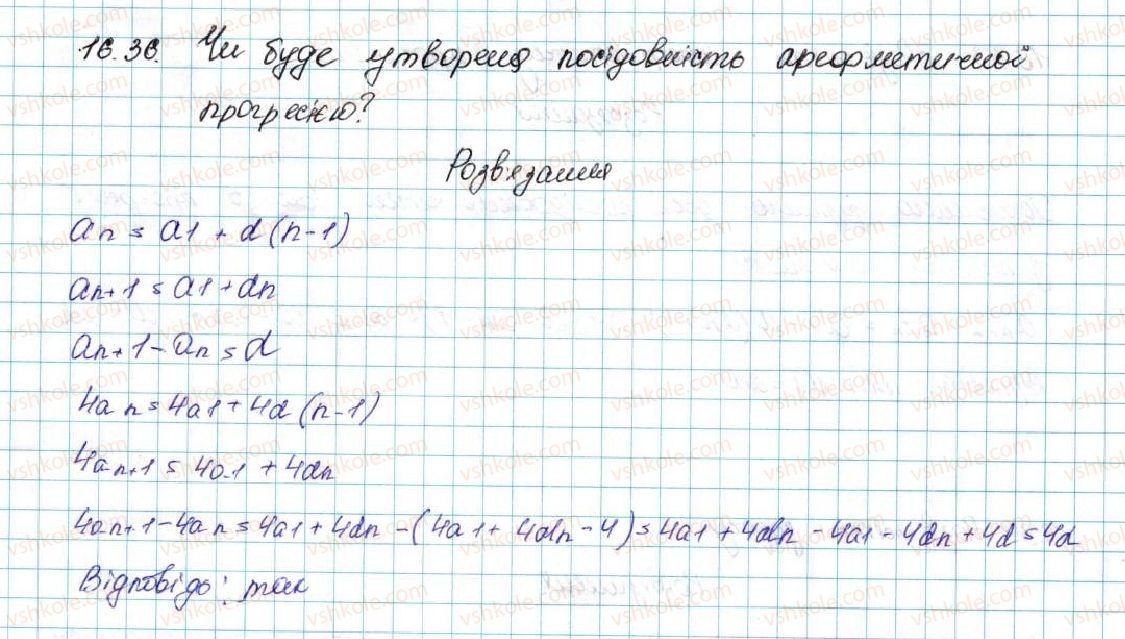 16.36. Чи буде утворена посідовність ареформетичной
прогресією?
Розвязання
an = a1 + d(n-1)
an+1 = a1 + dn
an+1 - an = d
4an = 4a1 + 4d(n-1)
4an+1 = 4a1 + 4dn
4an+1 - 4an = 4a1 + 4dn - (4a1 + 4dn - 4) = 4a1 + 4dn - 4a1 - 4dn + 4d = 4d
Відповідь: так